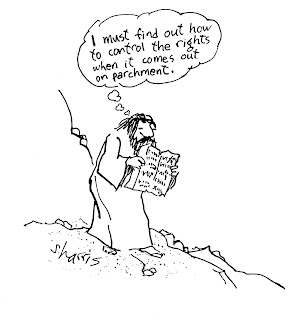 I must find out how
to control the rights
when it comes out
on parchment.
sharris